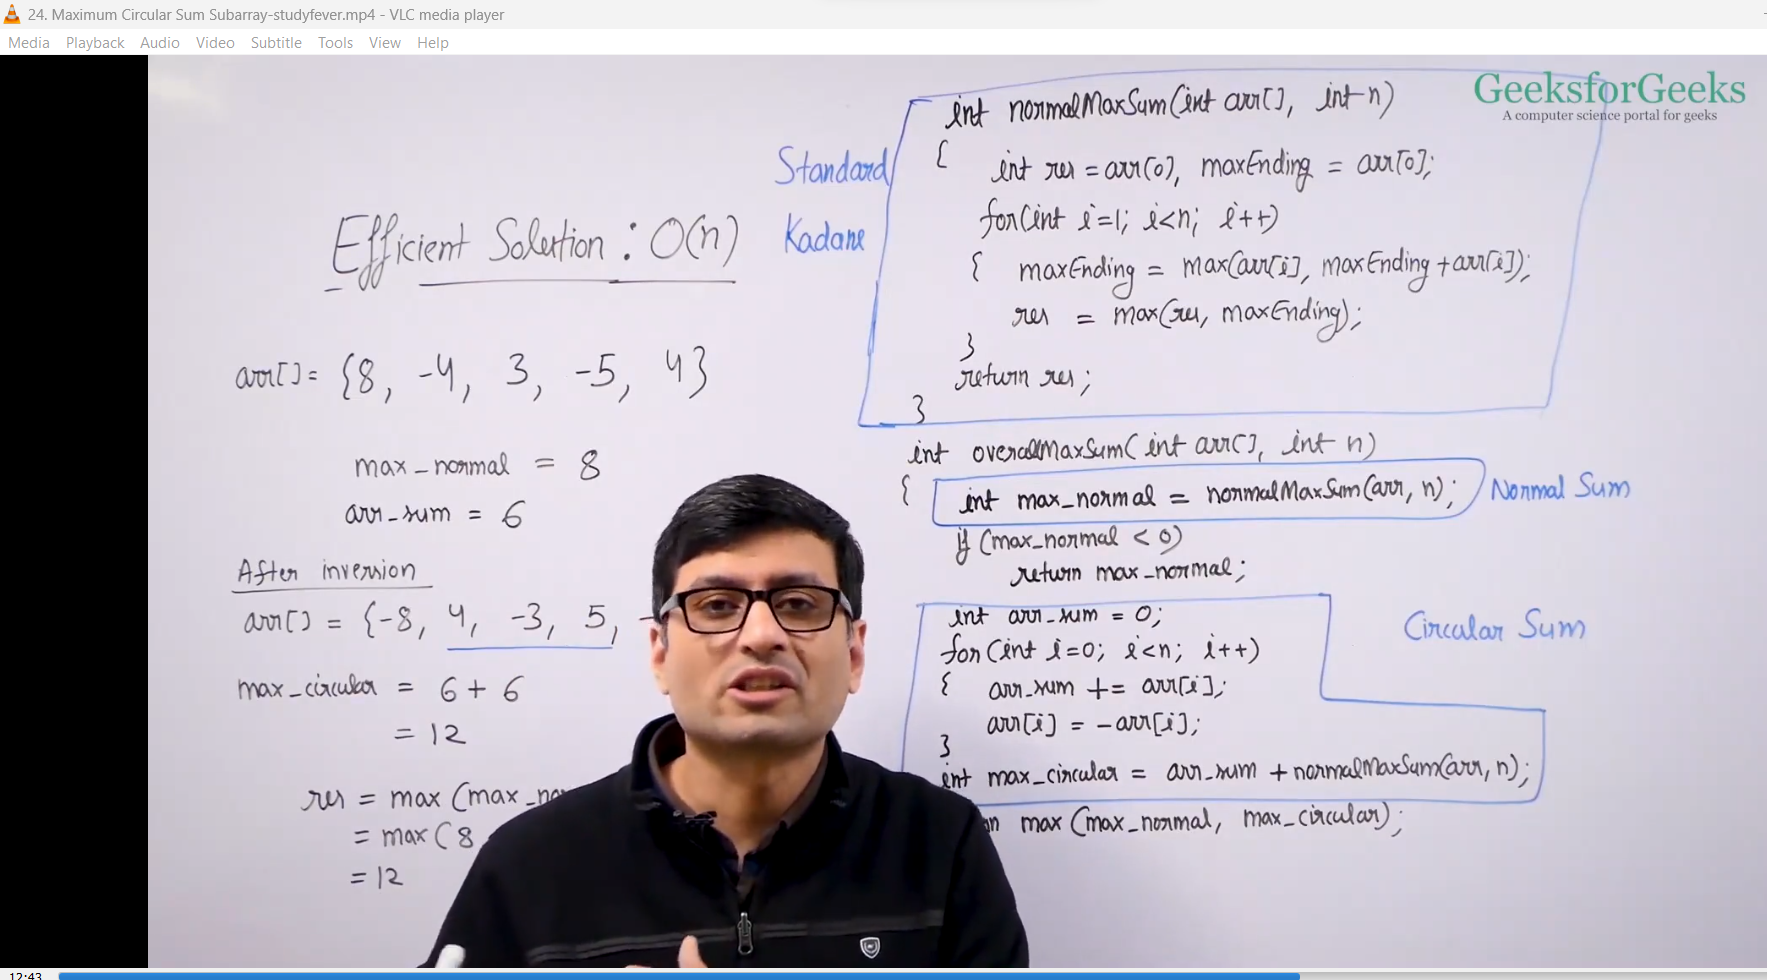 24. Maximum Circular Sum Subarray-studyfever.mp4 - VLC media player
Media Playback Audio Video Subtitle Tools View Help
GeeksforGeeks
A computer science portal for geeks
Efficient Solution : O(n)
arr[] = {8, -4, 3, -5, 4}
max_normal = 8
arr_sum = 6
After inversion
arr[] = {-8, 4, -3, 5, -
max_circular = 6 + 6
= 12
res = max (max_no
= max (8
= 12
Standard
Kadane
int normalMaxSum(int arr[], int n)
{
int res = arr[0], maxEnding = arr[0];
for(int i=1; i<n; i++)
{ maxEnding = max(arr[i], maxEnding+arr[i]);
res = max(res, maxEnding);
}
return res;
}
int overallMaxSum(int arr[], int n)
{ int max_normal = normalMaxSum(arr, n);
Normal Sum
if (max_normal < 0)
return max_normal;
Circular Sum
int arr_sum = 0;
for(int i=0; i<n; i++)
{ arr_sum += arr[i];
arr[i] = -arr[i];
}
int max_circular = arr_sum + normalMaxSum(arr, n);
n max (max_normal, max_circular);
12:43